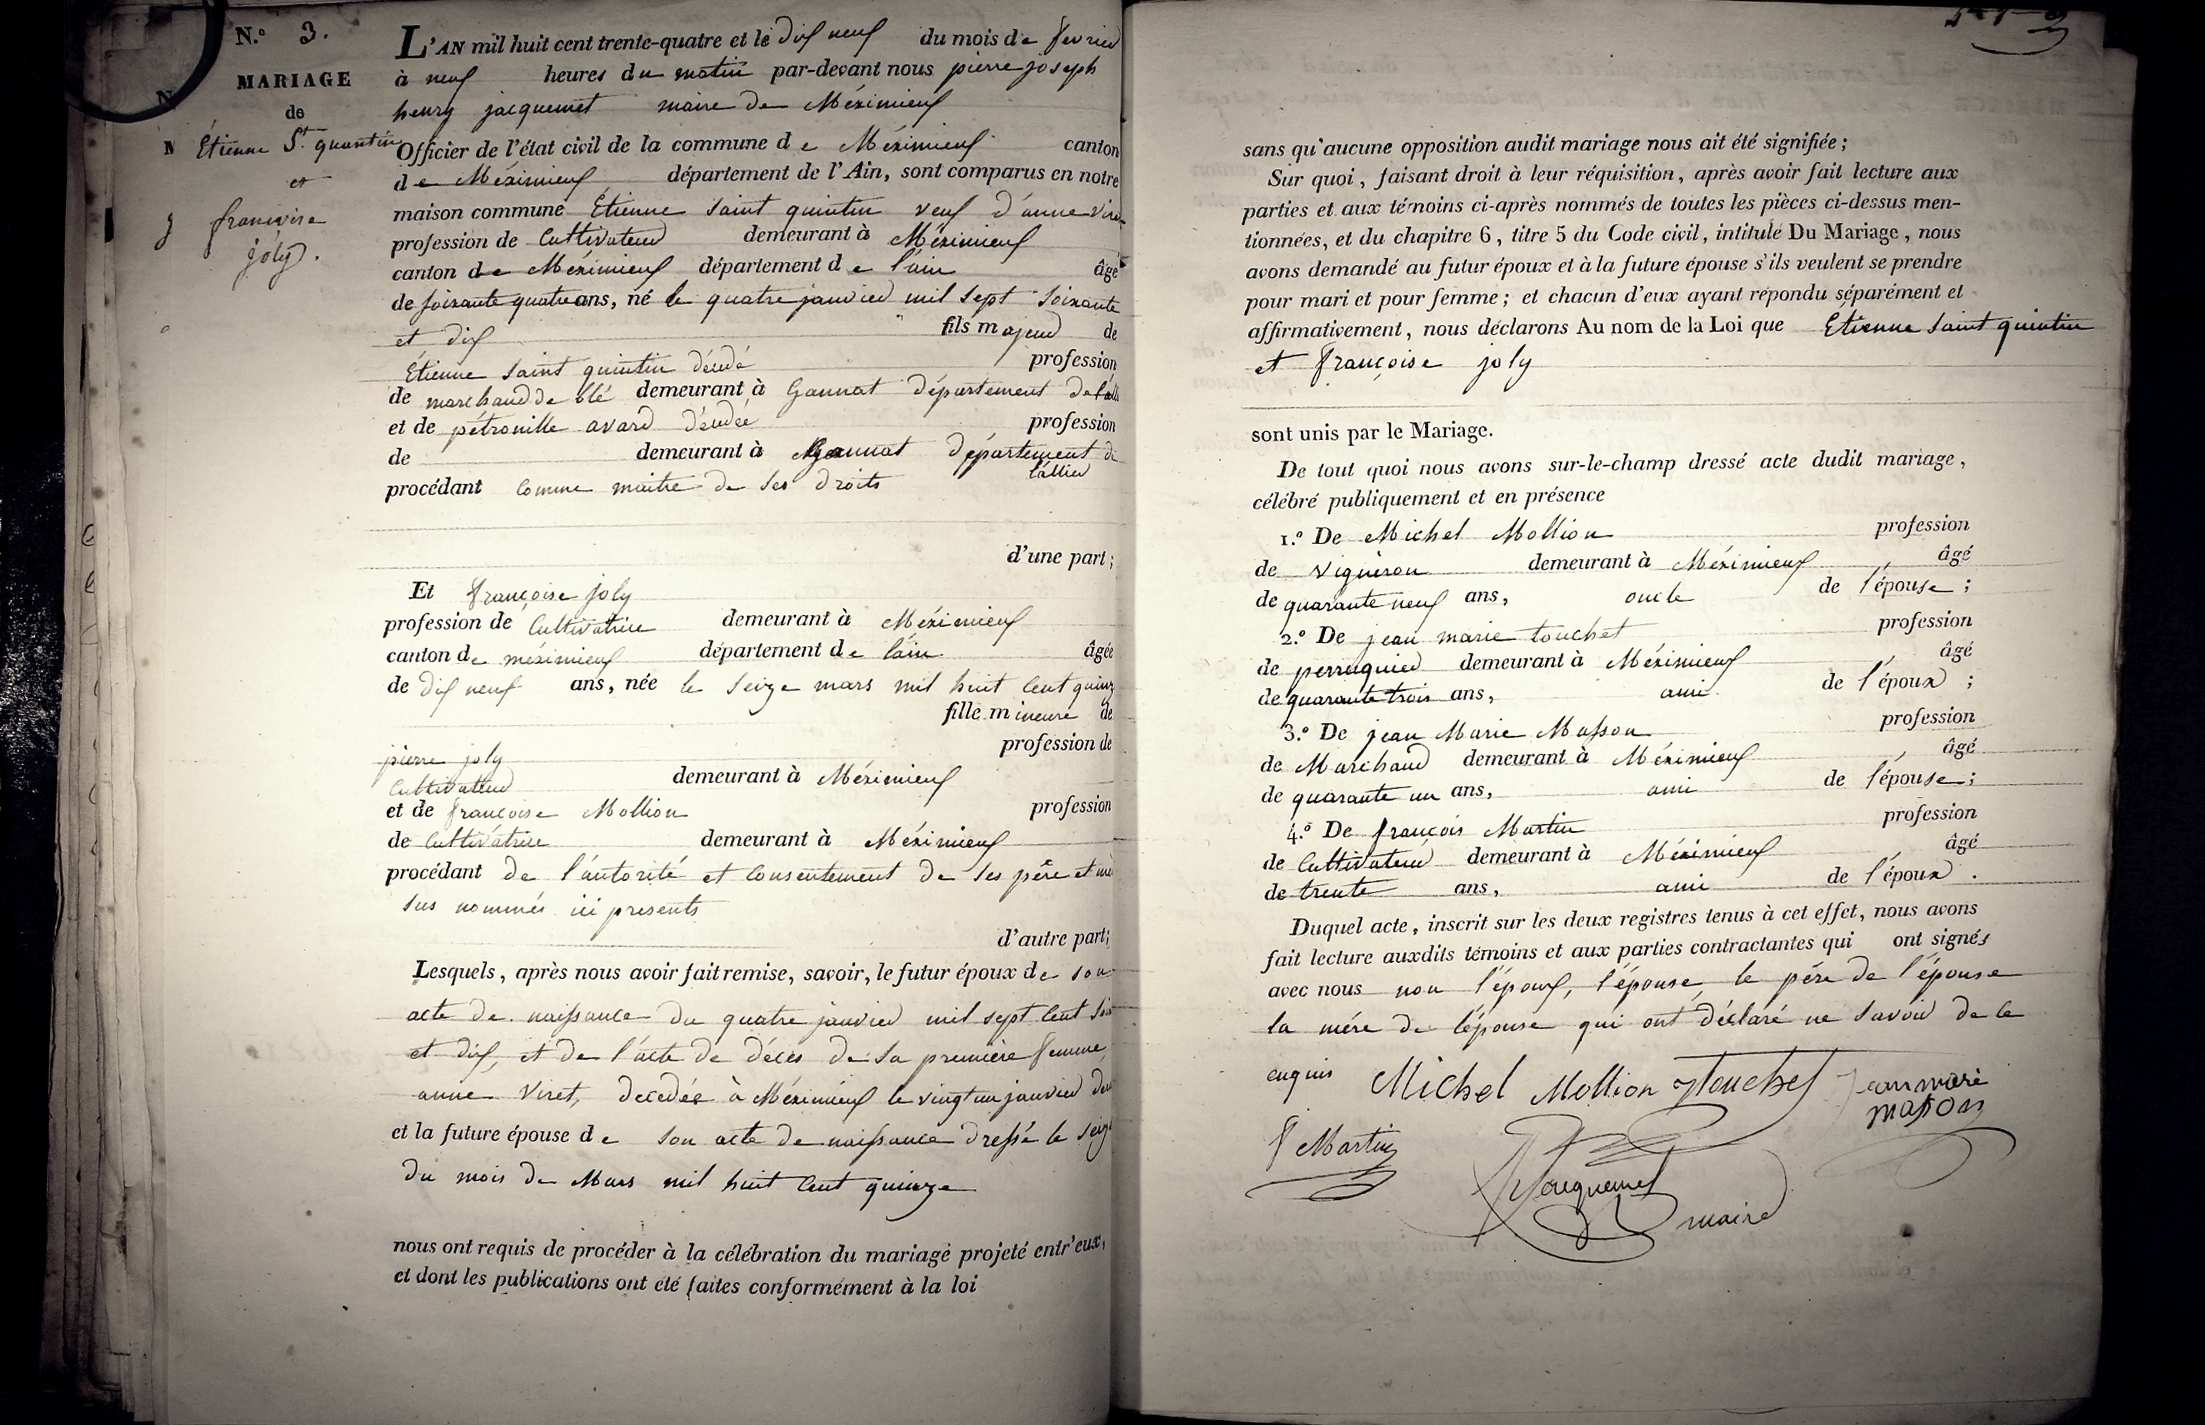 N.º 3.
MARIAGE
de
Étienne St. quentin
et
françoise
joly.
L'AN mil huit cent trente-quatre et le dix neuf du mois de fevrier
à neuf heures du matin par-devant nous pierre joseph
henry jacquemet maire de Méximieux
Officier de l'état civil de la commune de Méximieux canton
de Méximieux département de l'Ain, sont comparus en notre
maison commune Étienne saint quintin veuf d'anne
profession de Cultivateur demeurant à Méximieux
canton de Méximieux département de l'ain âgé
de soixante quatre ans, né le quatre janvier mil sept soixante
et dix fils majeur de
Étienne saint quintin décédé profession
de marchand de blé demeurant à Gannat département de
et de pétronille avard décédée profession
de demeurant à Gannat département de
l'allier
procédant comme maitre de ses droits
d'une part;
Et françoise joly
profession de Cultivatrice demeurant à Méximieux
canton de méximieux département de l'ain âgée
de dix neuf ans, née le seize mars mil huit cent quinz
fille mineure de
pierre joly profession de
Cultivateur demeurant à Méximieux
et de françoise Mollion profession
de Cultivatrice demeurant à Méximieux
procédant de l'autorité et consentement de ses père et mè
sus nommés ici presents
d'autre part;
Lesquels, après nous avoir fait remise, savoir, le futur époux de son
acte de naissance du quatre janvier mil sept cent soix
et dix, et de l'acte de décès de sa première femme,
anne Viret, decedée à Méximieux le vingt un janvier
et la future épouse de son acte de naissance dressé le seize
du mois de Mars mil huit cent quinze
nous ont requis de procéder à la célébration du mariage projeté entr'eux,
et dont les publications ont été faites conformément à la loi
sans qu'aucune opposition audit mariage nous ait été signifiée;
Sur quoi, faisant droit à leur réquisition, après avoir fait lecture aux
parties et aux témoins ci-après nommés de toutes les pièces ci-dessus men-
tionnées, et du chapitre 6, titre 5 du Code civil, intitulé Du Mariage, nous
avons demandé au futur époux et à la future épouse s'ils veulent se prendre
pour mari et pour femme; et chacun d'eux ayant répondu séparément et
affirmativement, nous déclarons Au nom de la Loi que Étienne saint quintin
et françoise joly
sont unis par le Mariage.
De tout quoi nous avons sur-le-champ dressé acte dudit mariage,
célébré publiquement et en présence
1.º De Michel Mollion profession
de vigneron demeurant à Méximieux, âgé
de quarante neuf ans, oncle de l'épouse;
2.º De jean marie touchet profession
de perruquier demeurant à Méximieux, âgé
de quarante trois ans, ami de l'époux;
3.º De jean Marie Masson profession
de Marchand demeurant à Méximieux, âgé
de quarante un ans, ami de l'épouse;
4.º De françois Martin profession
de Cultivateur demeurant à Méximieux, âgé
de trente ans, ami de l'époux.
Duquel acte, inscrit sur les deux registres tenus à cet effet, nous avons
fait lecture auxdits témoins et aux parties contractantes qui ont signés
avec nous non l'époux, l'épouse, le père de l'épouse
la mére de l'épouse qui ont déclaré ne savoir de ce
enquis Michel Mollion Touchet Jean mari
masson
f Martin
Jacquemet
maire